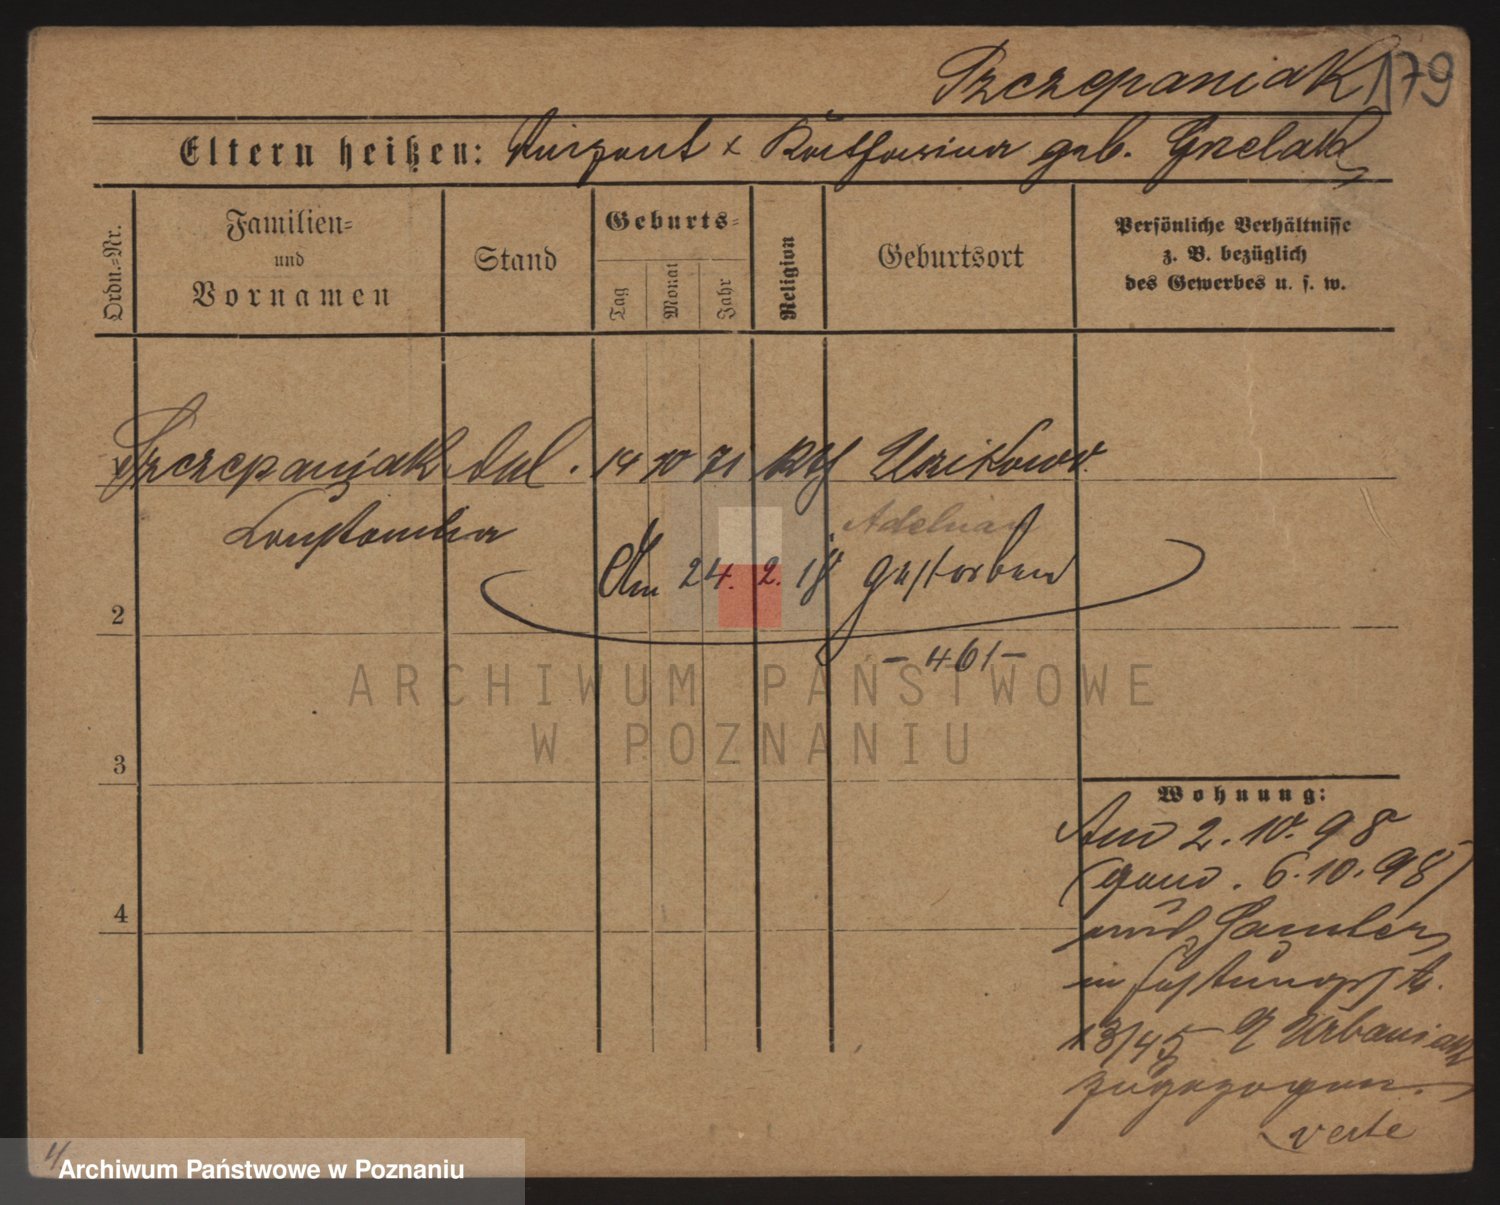 Szczepaniak 179
Eltern heißen: Vinzent & Katharina geb. Grzelak
Ordn.-Nr.
Familien-
und
Vornamen
Stand
Geburts-
Tag
Monat
Jahr
Religion
Geburtsort
Persönliche Verhältnisse
z. B. bezüglich
des Gewerbes u. s. w.
Szczepaniak led. 14 10 71 kth Uzikowo.
Konstantia
Adelnau
Am 24. 2. 18 gestorben
2
- 461 -
ARCHIWUM PAŃSTWOWE
W POZNANIU
3
Wohnung:
Am 2. 10. 98
(gem. 6. 10. 98)
4
in
13/45 Urbaniak
zugezogen.
verte
Archiwum Państwowe w Poznaniu